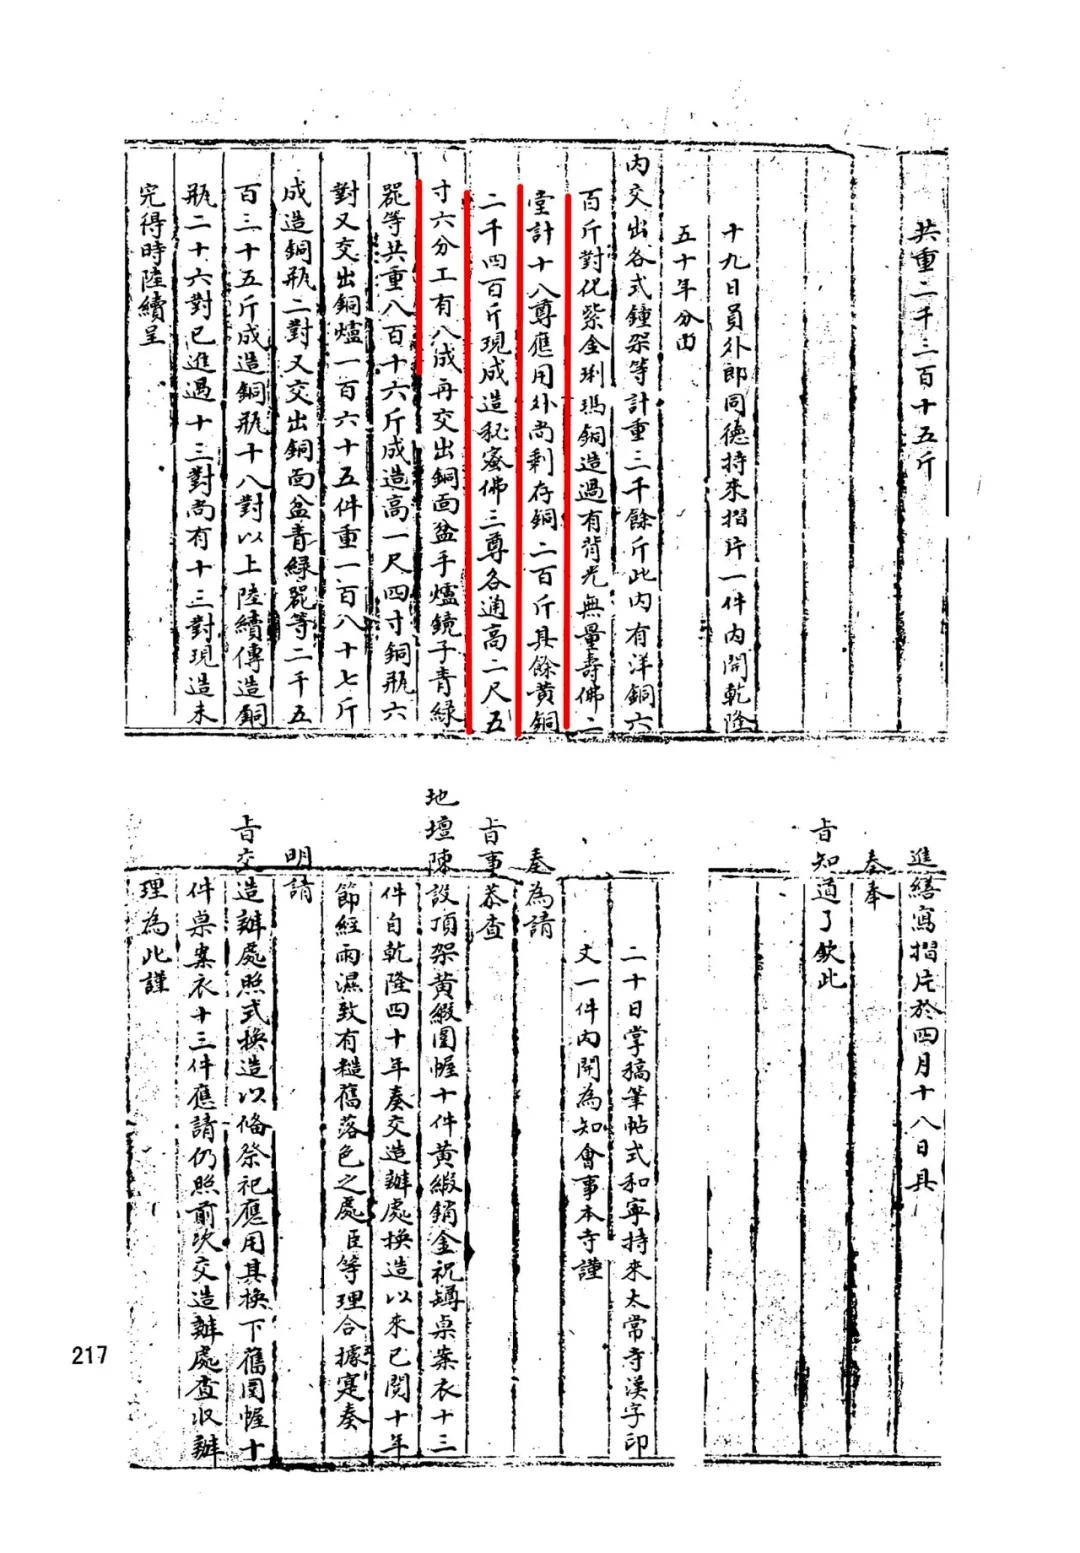 共重二千三百十五斤
十九日員外郎同德持來摺片一件內開乾隆
五十年分由
內交出各式鍾架等計重三千餘斤此內有洋銅六
百斤對化紫金琍瑪銅造過有背光無量壽佛二
堂計十八尊應用外尚剩存銅二百斤其餘黃銅
二千四百斤現成造秘密佛三尊各通高二尺五
寸六分工有八成再交出銅面盆手爐鏡子青綠
器等共重八百十六斤成造高一尺四寸銅瓶六
對又交出銅爐一百六十五件重一百八十七斤
成造銅瓶二對又交出銅面盆青綠器等二千五
百三十五斤成造銅瓶十八對以上陸續傳造銅
瓶二十六對已進過十三對尚有十三對現造未
完得時陸續呈
進繕寫摺片於四月十八日具
奏奉
旨知道了欽此
二十日掌稿筆帖式和寧持來太常寺漢字印
文一件內開為知會事本寺謹
奏為請
旨事恭查
地壇陳設頂架黃緞圍幄十件黃緞銷金祝罇桌案衣十三
件自乾隆四十年奏交造辦處換造以來已閱十年
節經雨濕致有糙舊落色之處臣等理合據寔奏
明請
旨交造辦處照式換造以備祭祀應用其換下舊圍幄十
件桌案衣十三件應請仍照前次交造辦處查收辦
理為此謹
217